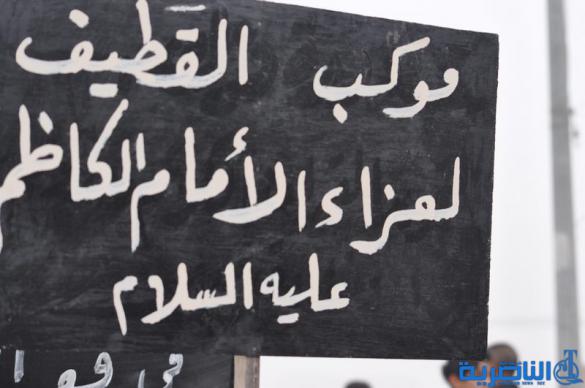 موكب القطيف
لعزاء الأمام الكاظم
عليه السلام
في
الناصرية